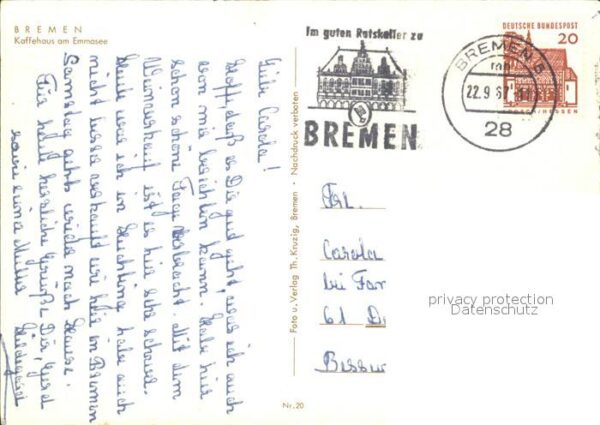 BREMEN
Kaffehaus am Emmasee
Liebe Carola!
Hoffe, daß es Dir gut geht, was ich auch
von mir berichten kann. Habe hier
schon schöne Tage verbracht. Mit dem
ist es hier sehr schwer.
Heute war ich in habe auch
nicht wie hier in Bremen
Samstag geht's wieder nach Hause.
Für heute herzliche Grüße Dir,
sowie Deine Mutter
Hildegard
Foto u. Verlag Th. Kruzig, Bremen · Nachdruck verboten
Nr. 20
Im guten Ratskeller zu
BREMEN
BREMEN 5
22.9.67
28
DEUTSCHE BUNDESPOST
20
LORSCH/HESSEN
Frl.
Carola
bei Far
61 D
Bessu
privacy protection
Datenschutz